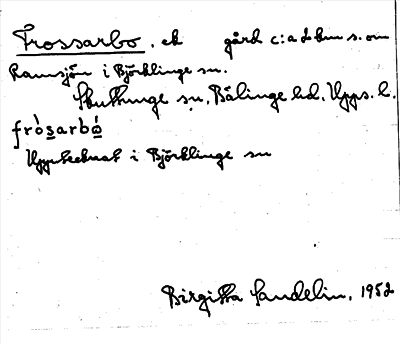 Frossarbo, ek gård c:a 2 km s. om
Ramsjön i Björklinge sn.
Skuttunge sn, Bälinge hd, Upps. l.
fròsarbó
Upptecknat i Björklinge sn
Birgitta Sandelin, 1952